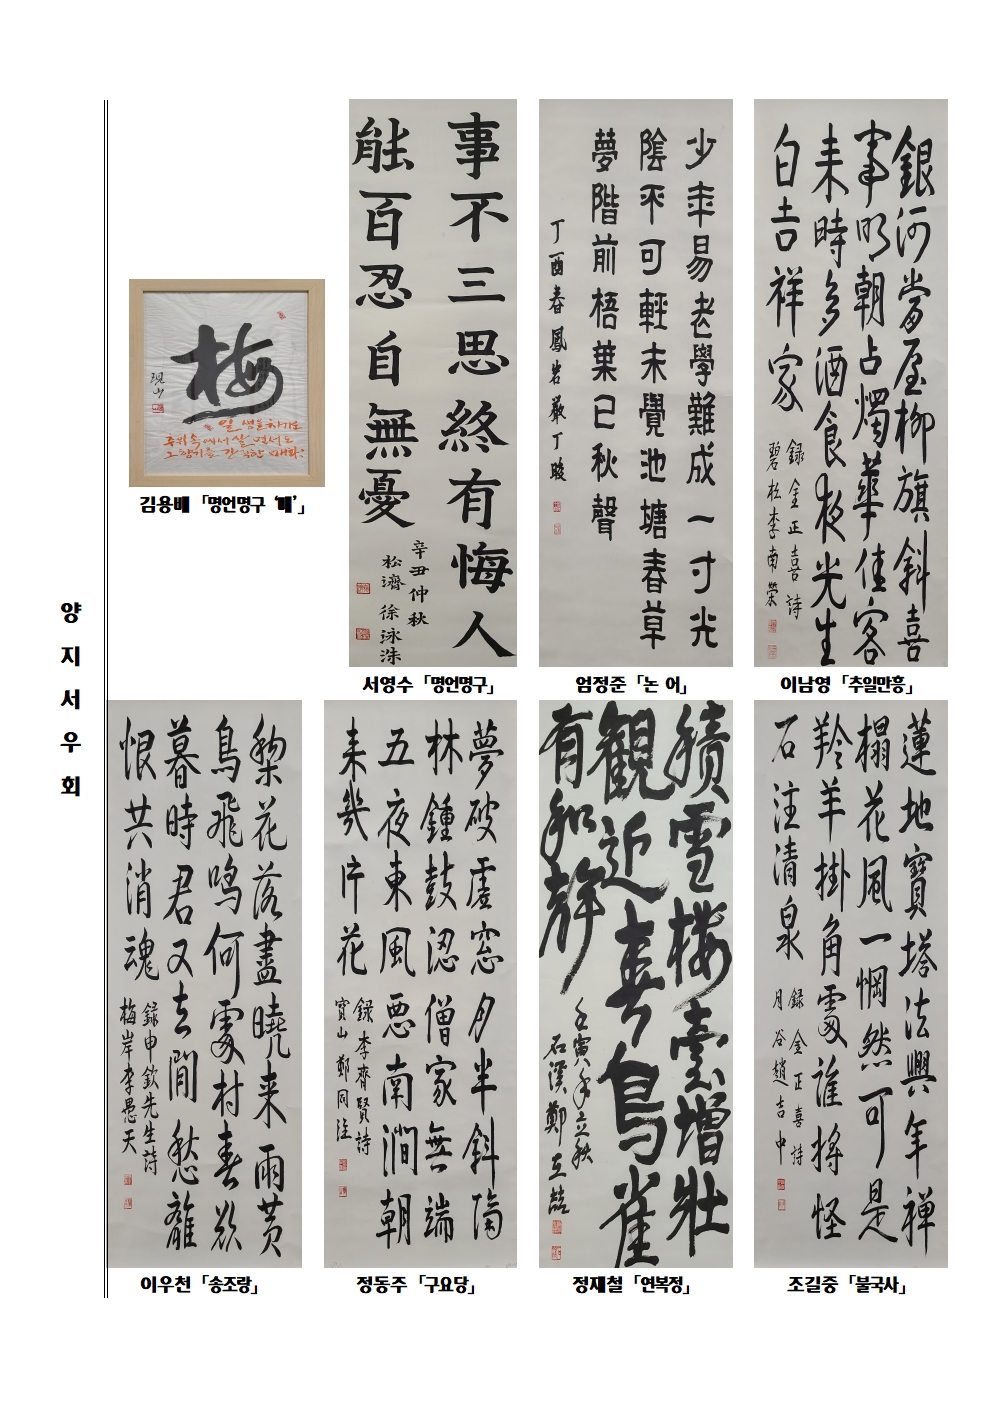 양지서우회
梅
現山
추위속에서 살면서도
그 향기를 간직한 매화.
김용배 「명언명구 '매'」
事不三思終有悔人
能百忍自無憂
辛丑仲秋
松濟 徐泳洙
서영수 「명언명구」
少年易老學難成一寸光
陰不可輕未覺池塘春草
夢階前梧葉已秋聲
丁酉春 鳳岩 嚴丁晙
엄정준 「논 어」
銀河當屋柳旗斜喜
事明朝占燭華佳客
来時多酒食夜光生
白吉祥家
錄金正喜詩
碧松李南榮
이남영 「추일만흥」
梨花落盡曉来雨黄
鳥飛鳴何處村春欲
暮時君又去閒愁離
恨共消魂
錄申欽先生詩
梅岸李愚天
이우천 「송조랑」
夢破虛窓月半斜隔
林鍾鼓認僧家無端
五夜東風惡南澗朝
来幾片花
錄李齊賢詩
寶山 鄭同注
정동주 「구요당」
積雪樓臺增壯
觀近春鳥雀
有和聲
壬寅年立秋
石溪鄭在喆
정재철 「연복정」
蓮地寶塔法興年禅
榻花風一惘然可是
羚羊掛角處誰將怪
石注清泉
錄金正喜詩
月谷趙吉中
조길중 「불국사」